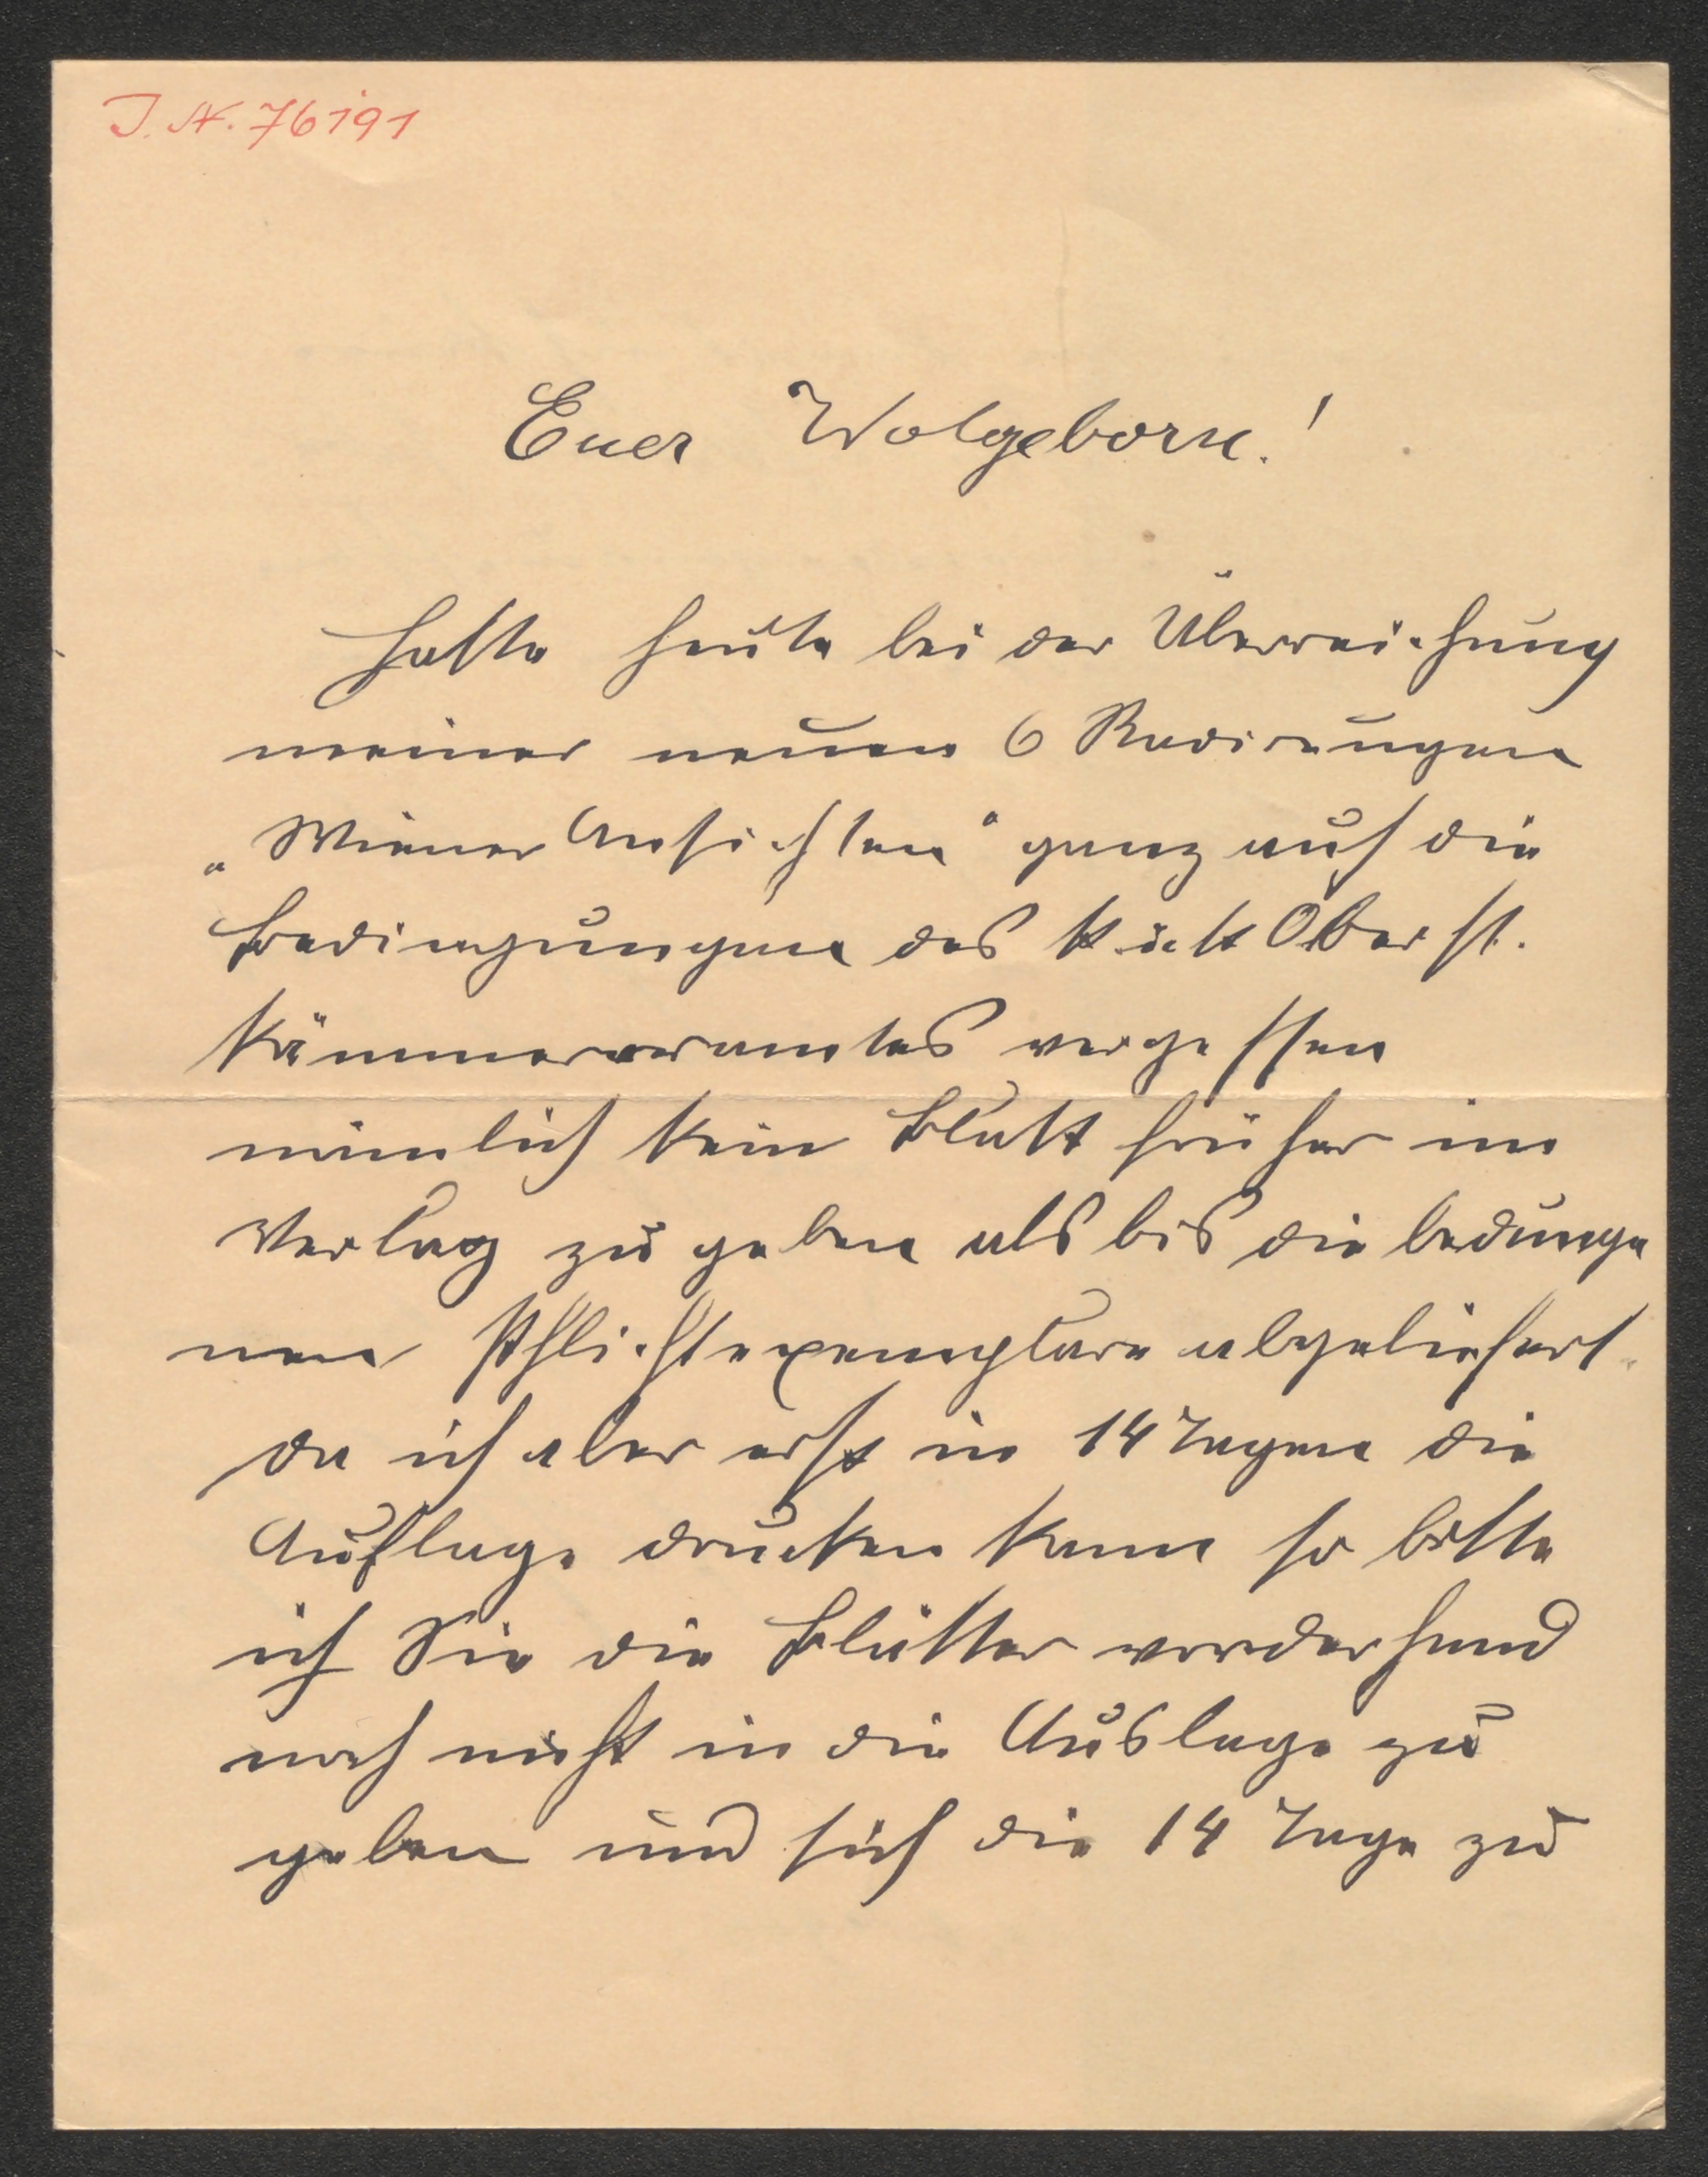 J. N. 76191
Euer Wolgeborn!
Hatte heute bei der Überreichung
meiner neuen 6 Radirungen
„Wiener Ansichten" ganz auf die
Bedingungen des k. u. k. Oberst.
Kämmereramtes vergessen
nämlich kein Blatt früher in
Verlag zu geben als bis die bedunge
nen Pflichtexemplare abgeliefert.
da ich aber erst in 14 Tagen die
Auflage drucken kann so bitte
ich Sie die Blätter vorderhand
noch nicht in die Auslage zu
geben und sich die 14 Tage zu